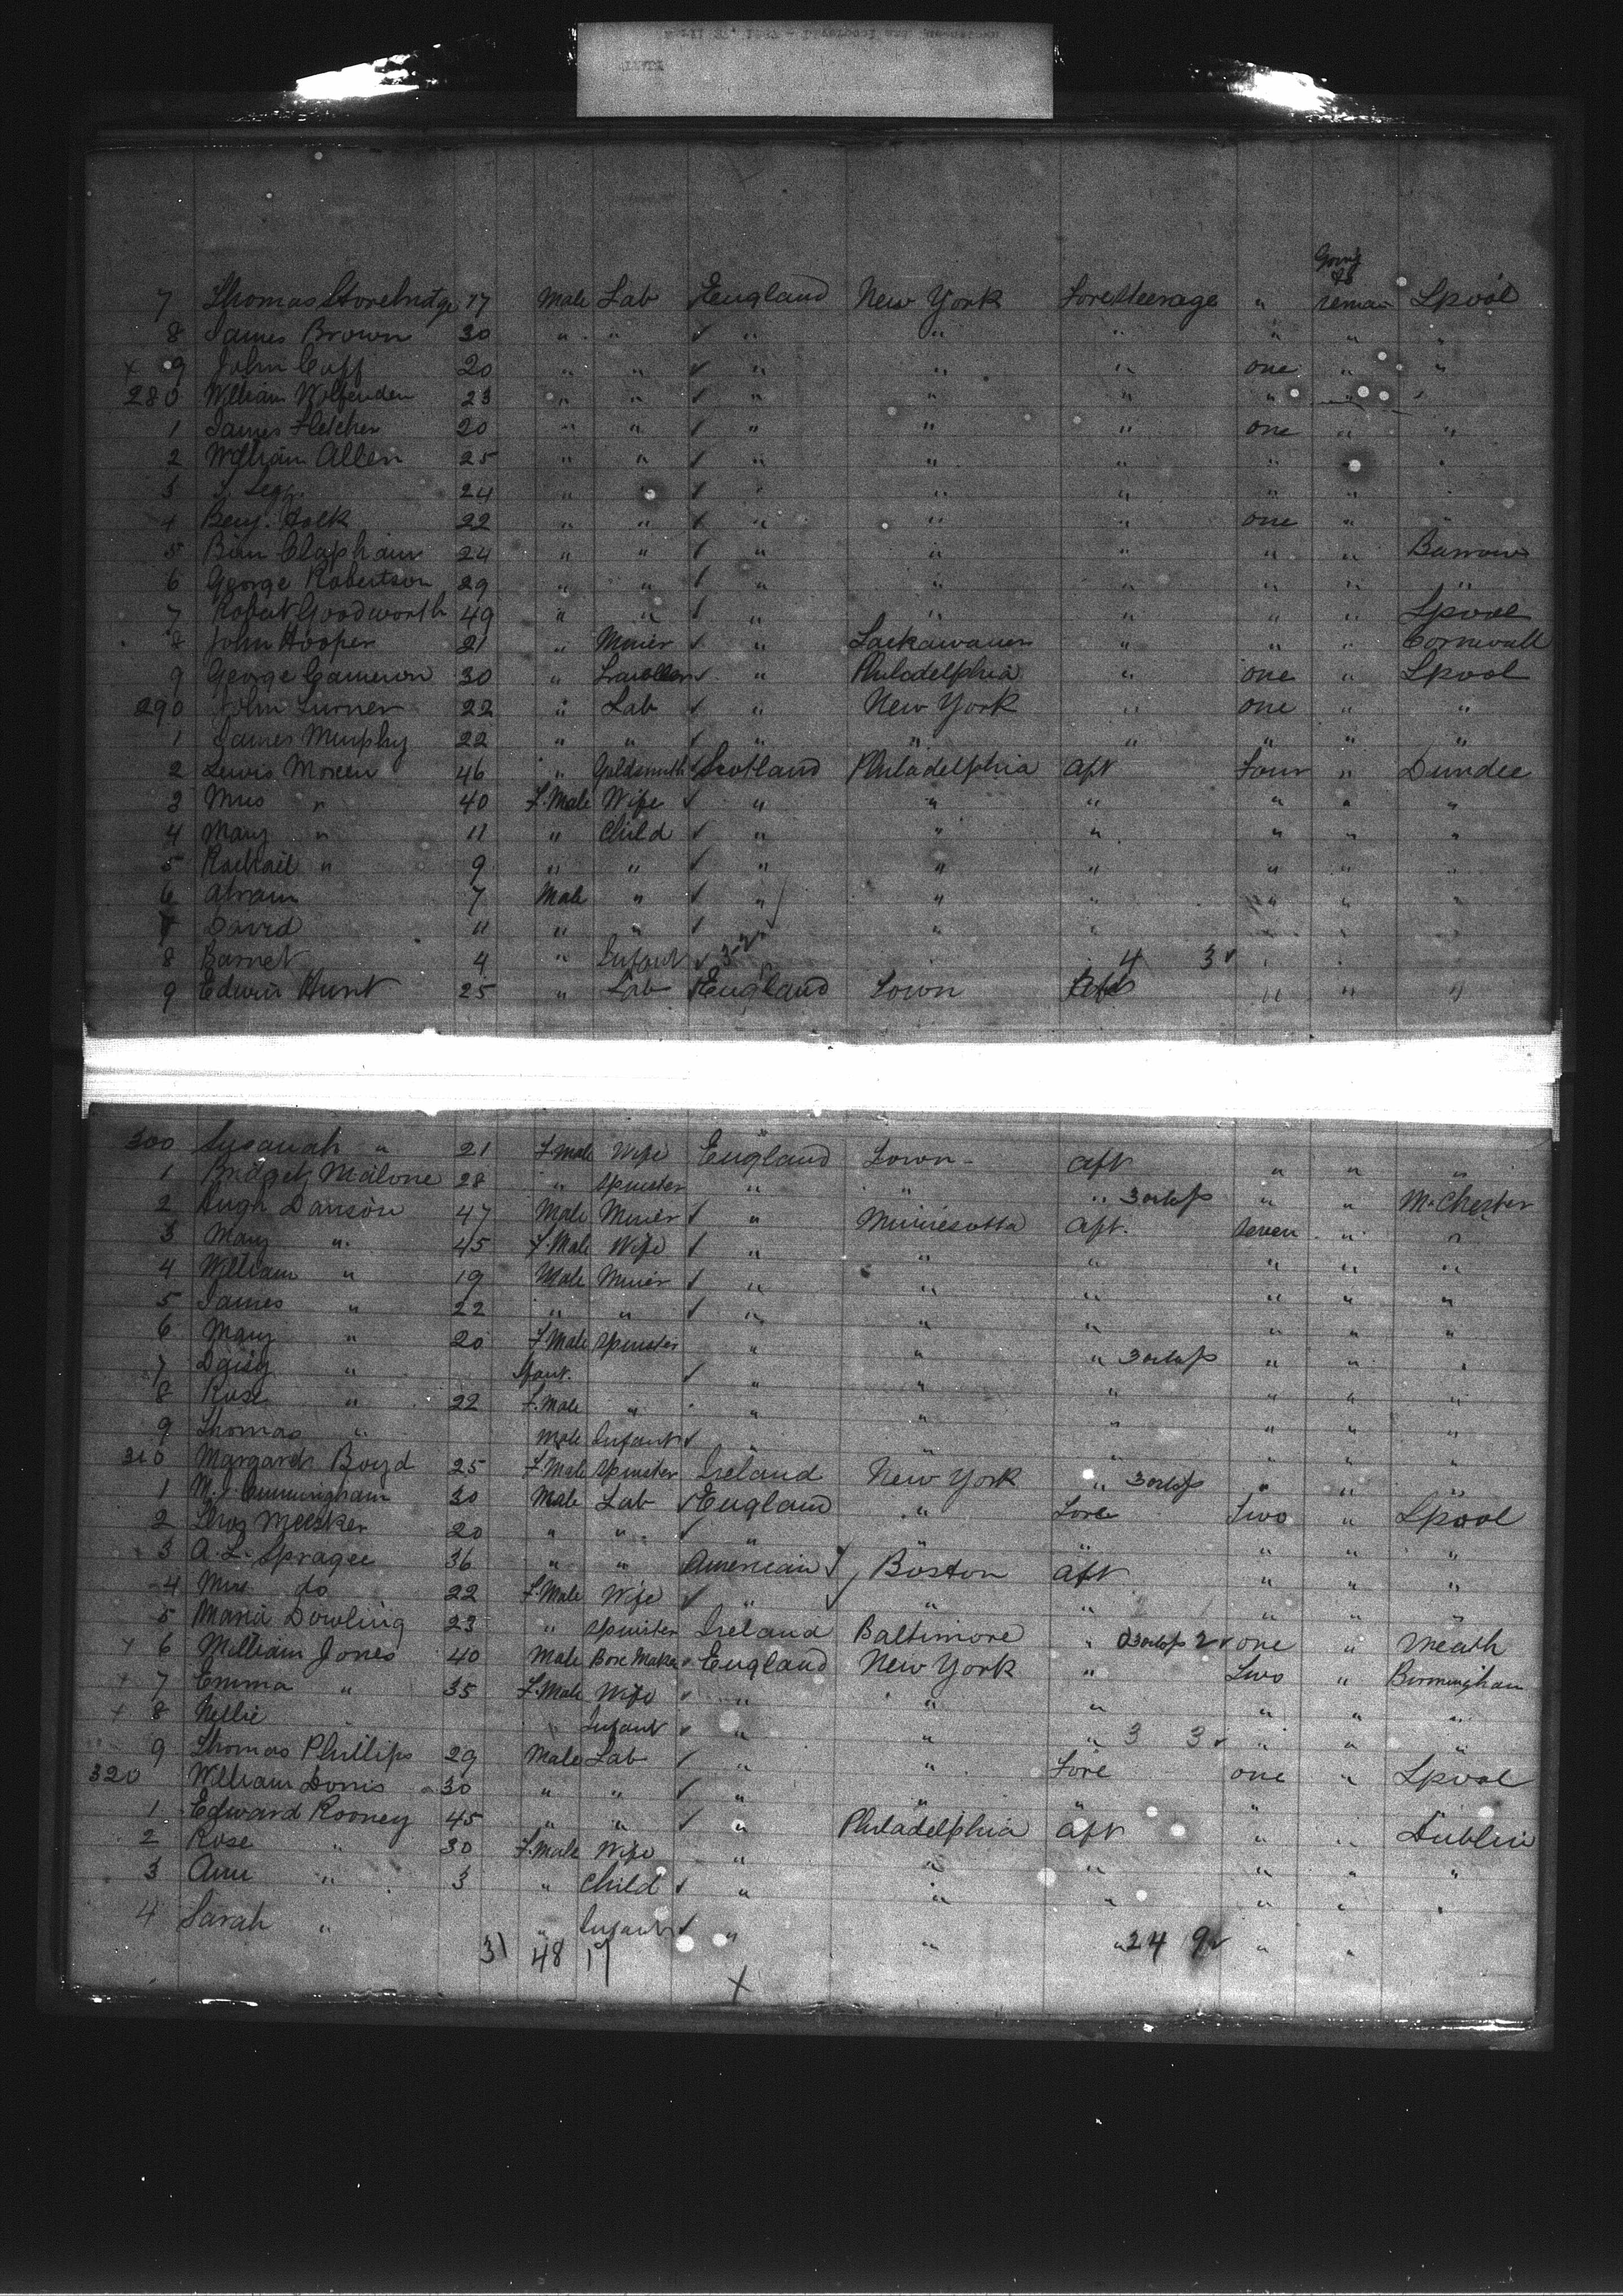 Going
to
7 Thomas Stonebridge 17 Male Lab England New York Fore Steerage " remain Lpool
8 James Brown 30 " " " " " " " "
x 9 John Cuff 20 " " " " " one " "
280 William Wolfenden 23 " " " " " " " "
1 James Fletcher 20 " " " " " one " "
2 William Allen 25 " " " " " " " "
3 24 " " " " " " " "
4 Benj. 22 " " " " " one " "
5 Clapham 24 " " " " " " " Barrow
6 George Robertson 29 " " " " " " " "
7 Robert Goodworth 49 " " " " " " " Lpool
8 John Hooper 21 " Miner " Lackawanen " " " Cornwall
9 George Cameron 30 " " Philadelphia " one " Lpool
290 John Turner 22 " Lab " New York " one " "
1 James Murphy 22 " " " " " " " "
2 Lewis Moreen 46 " Goldsmith Scotland Philadelphia Aft Four " Dundee
3 Mrs " 40 F.Male Wife " " " " " "
4 Mary " 11 " Child " " " " " "
5 Rachail " 9 " " " " " " " "
6 Abram 7 Male " " " " " " "
7 David 11 " " " " " " " "
8 Barnet 4 " Infant 4 3
9 Edwin Hunt 25 " Lab England Town Aft " " "
300 Susanah " 21 F.Male Wife England Town Aft " " "
1 Bridget Malone 28 " Spinster " " " 3 " " M.Chester
2 Hugh Danson 47 Male Miner " Minnesotta Aft. Seven " "
3 Mary " 45 F.Male Wife " " " " " "
4 William " 19 Male Miner " " " " " "
5 James " 22 " " " " " " " "
6 Mary " 20 F.Male Spinster " " " 3 " " "
7 Daisy " Ifant. " " " " " "
8 Rose " 22 F.Male " " " " " " "
9 Thomas " Male Infant " " " " " "
310 Margaret Boyd 25 F.Male Spinster Ireland New York " 3 " " "
1 M.J. Cunningham 30 Male Lab England " Fore Two " Lpool
2 Meesker 20 " " " " " " " "
3 A.L. Spragee 36 " " American Boston Aft " " "
4 Mrs do 22 F.Male Wife " " " " " "
5 Maria Dowling 23 " Spinster Ireland Baltimore " 3 2 one " Meath
x 6 William Jones 40 Male Box Maker England New York " Two " Birmingham
x 7 Emma " 35 F.Male Wife " " " " " "
x 8 Nellie " Infant " " " 3 3 " " "
9 Thomas Phillips 29 Male Lab " " Fore one " Lpool
320 William Dorris 30 " " " " " " " "
1 Edward Rooney 45 " " " Philadelphia Aft " " Dublin
2 Rose " 30 F.Male Wife " " " " " "
3 Ann " 3 " Child " " " " " "
4 Sarah " " Infant " " " 24 9 " "
31 48 17
x